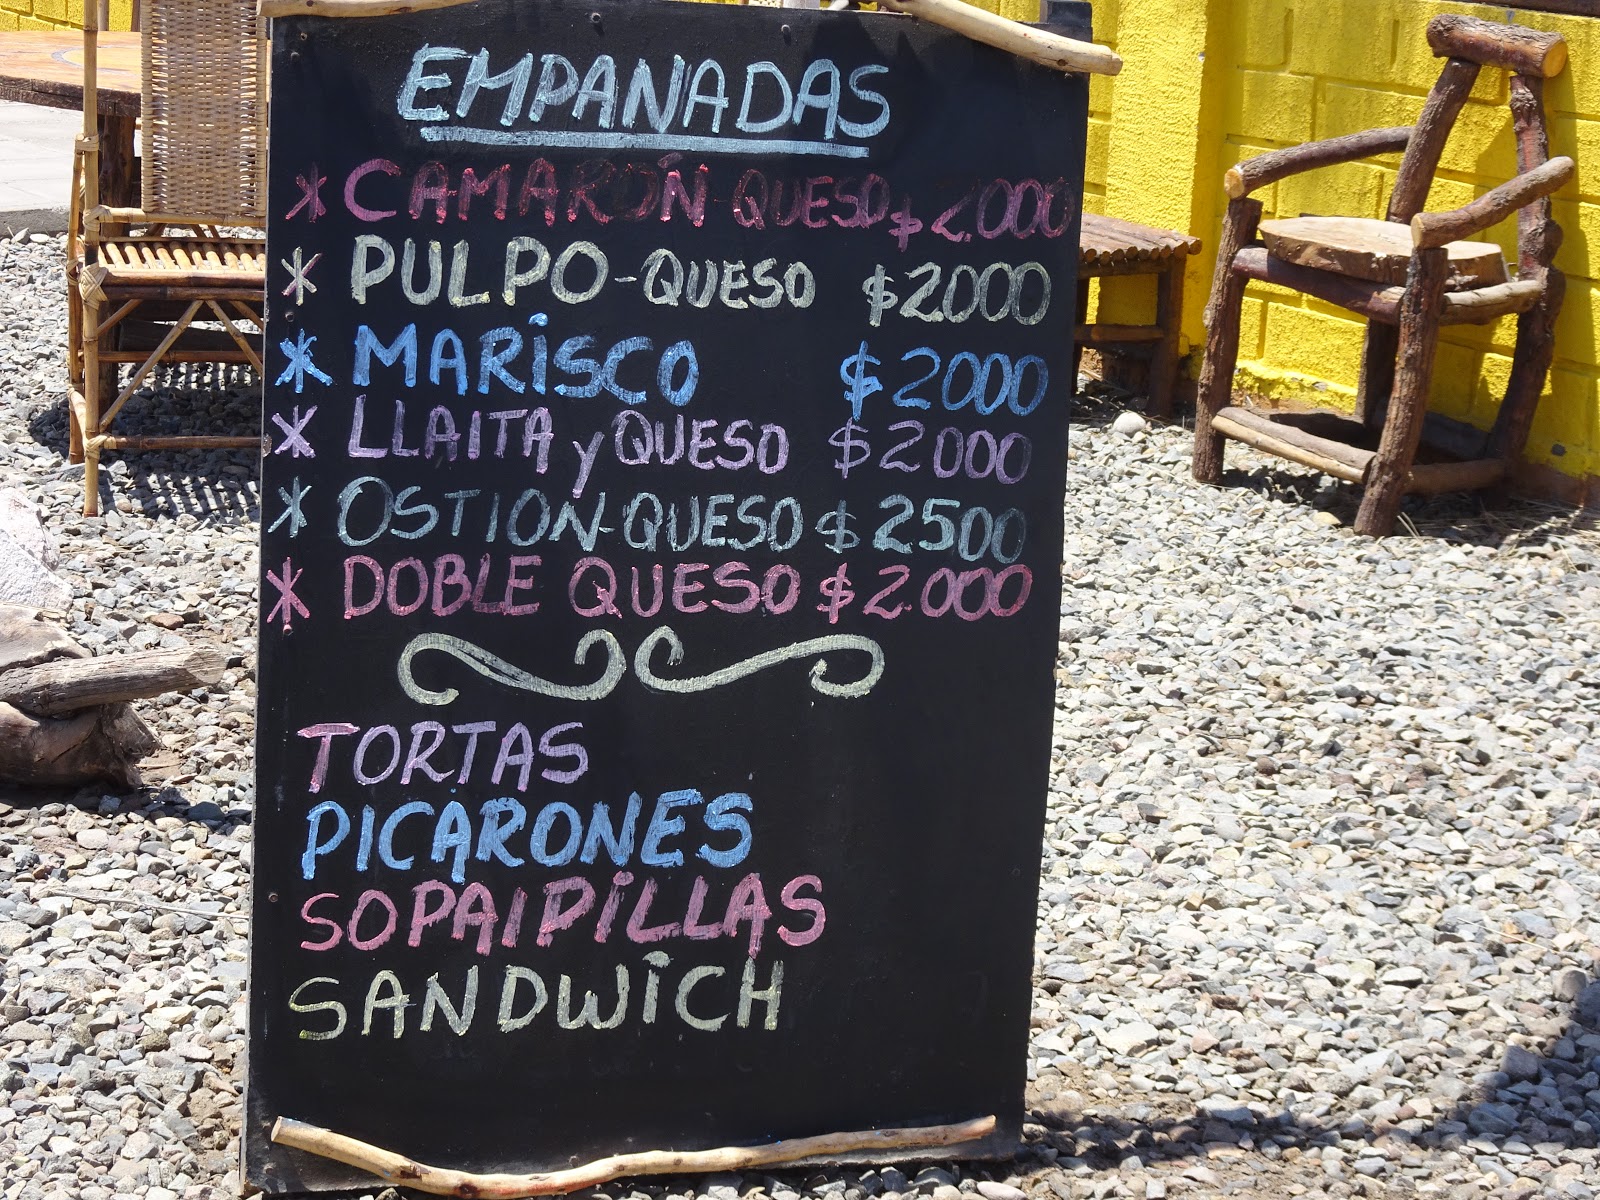 EMPANADAS
* CAMARÓN-QUESO $2.000
* PULPO-QUESO $2000
* MARISCO $2000
* LLAITA y QUESO $2000
* OSTION-QUESO $2500
* DOBLE QUESO $2.000
TORTAS
PICARONES
SOPAIPILLAS
SANDWICH